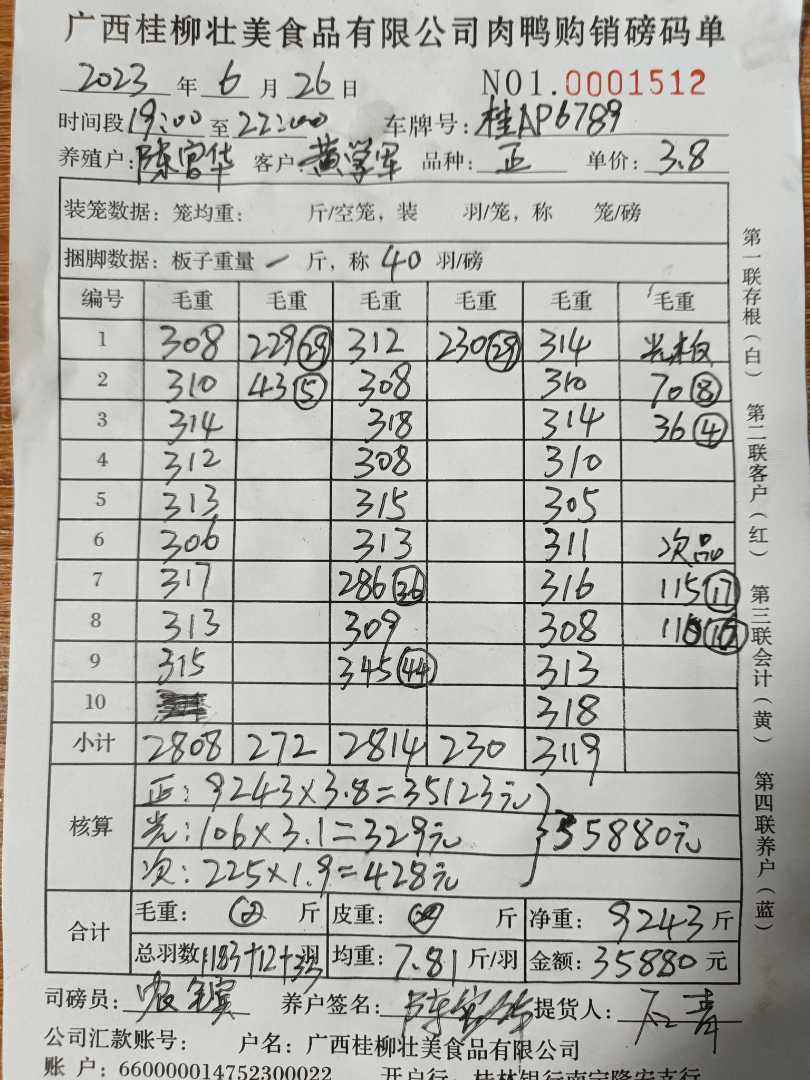 广西桂柳壮美食品有限公司肉鸭购销磅码单
2023 年 6 月 26 日 NO1.0001512
时间段 19:00 至 22:00 车牌号: 桂AP6789
养殖户: 陈官华 客户: 黄学军 品种: 正 单价: 3.8
装笼数据: 笼均重: 斤/空笼, 装 羽/笼, 称 笼/磅
捆脚数据: 板子重量 一 斤, 称 40 羽/磅
编号 毛重 毛重 毛重 毛重 毛重 毛重
1 308 229(29) 312 230(29) 314 光板
2 310 43(5) 308 310 70(8)
3 314 318 314 36(4)
4 312 308 310
5 313 315 305
6 306 313 311 次品
7 317 286(36) 316 115(17)
8 313 309 308 110
9 315 345(44) 313
10 318
小计 2808 272 2814 230 3119
核算
正: 9243×3.8=35123元
光: 106×3.1=329元
次: 225×1.9=428元
35880元
合计
毛重: 斤 皮重: 斤 净重: 9243 斤
总羽数: 1183+12+33 羽 均重: 7.81 斤/羽 金额: 35880 元
司磅员: 养户签名: 提货人: 石青
公司汇款账号: 户名: 广西桂柳壮美食品有限公司
账 户: 660000014752300022 开户行: 桂林银行南宁隆安支行
第一联存根(白) 第二联客户(红) 第三联会计(黄) 第四联养户(蓝)